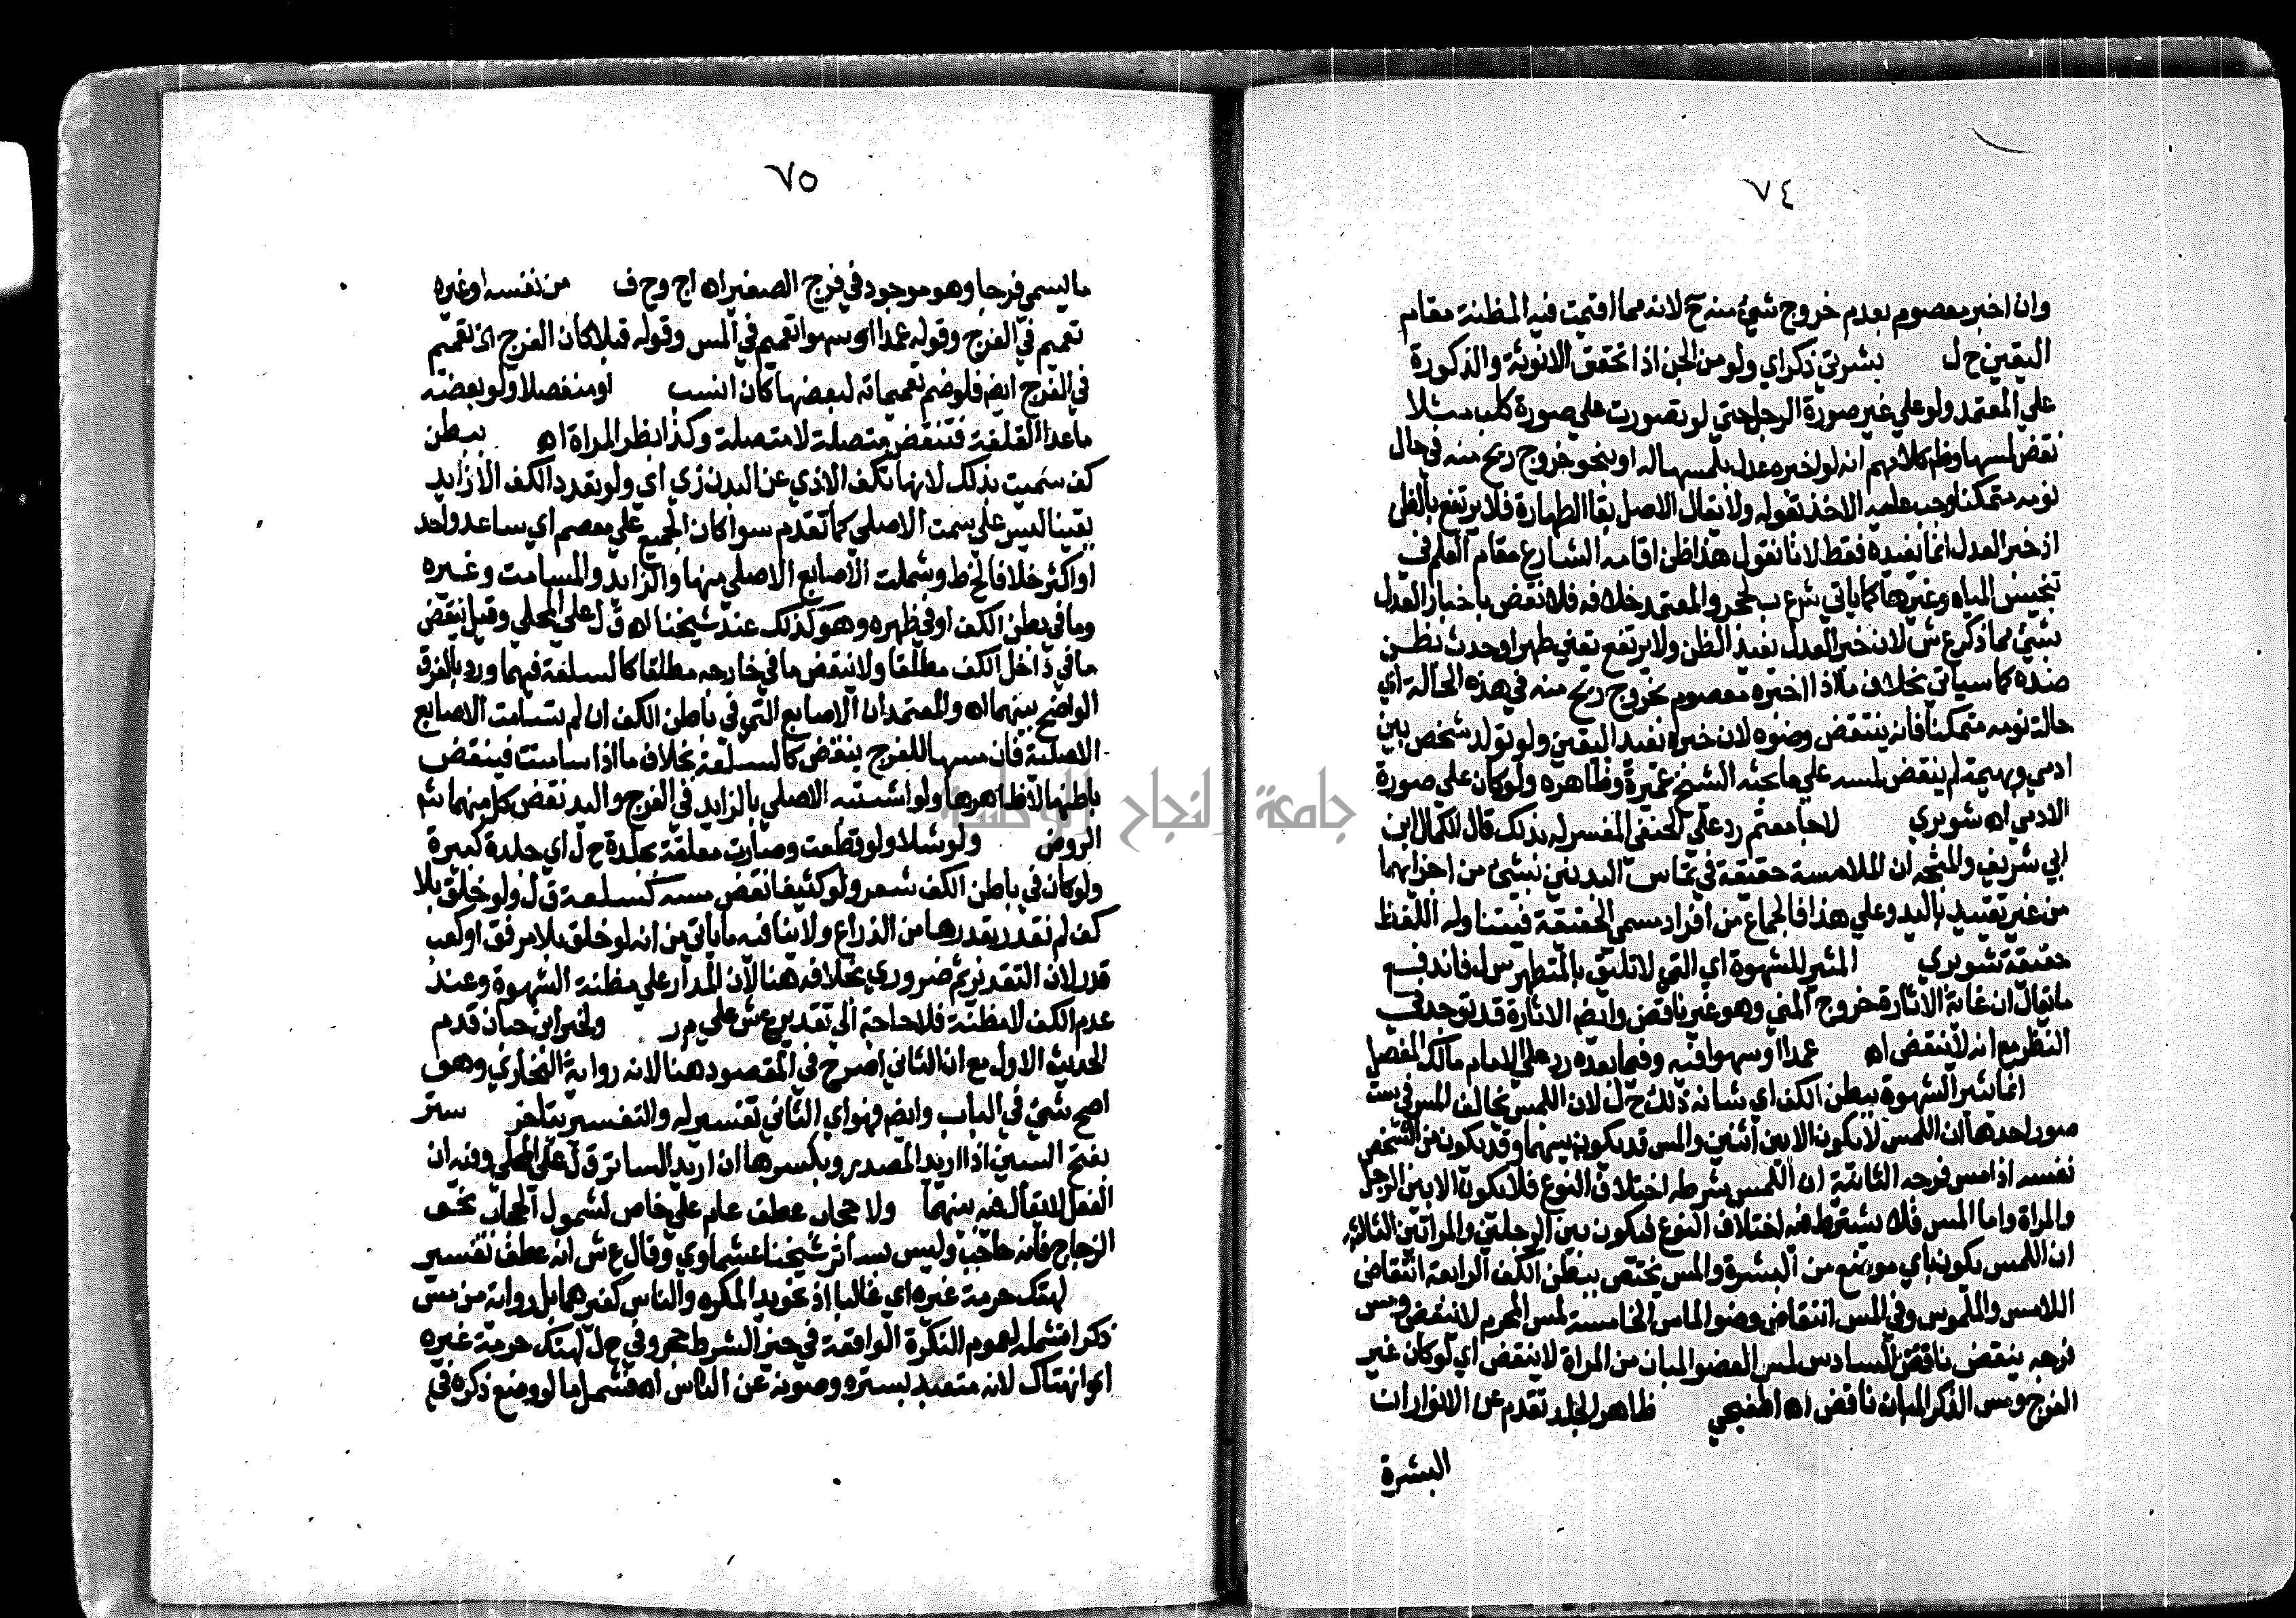 ٧٤
وان اخبر معصوم بعدم خروج شئ منه ح لانه مما اقيمت فيه المظنة مقام
اليقين ح ل بشرتي ذكر اي ولو من الجن اذا تحقق الانوثة والذكورة
علي المعتمد ولو علي غير صورة الرجل حتي لو تصورت علي صورة كلب مثلا
نقض لمسها وظ كلامهم انه لو اخبره عدل بلمسها له او بنحو خروج ريح منه في حال
نومه متمكنا وجب عليه الاخذ بقوله ولا يقال الاصل بقا الطهارة فلا يرتفع بالظن
اذ خبر العدل انما يفيده فقط لانا نقول هذا ظن اقامه الشارع مقام العلم في
تنجيس المياه وغيرها كما ياتي شرع ب لحجر والمعتمد خلافه فلا نقض باخبار العدل
بشئ مما ذكر ع ش لان خبر العدل يفيد الظن ولا يرتفع يقين طهر او حدث بظن
ضده كما سياتي بخلاف ما اذا اخبره معصوم بخروج ريح منه في هذه الحالة اي
حالة نومه متمكنا فانه ينتقض وضوه لان خبره يفيد اليقين ولو تولد شخص بين
ادمي وبهيمة لم ينقض لمسه علي ما بحثه الشيخ عميرة وظاهره ولو كان علي صورة
الادمي اه شوبري لاجامعتم رد علي الحنفي المفسر له بذلك قال الكمال ابن
ابي شريف والمتجه ان الملامسة حقيقة في تماس البدنين بشئ من اجزايهما
من غير تقييد باليد وعلي هذا فالجماع من افراد مسمي الحقيقة فيتناوله اللفظ
حقيقة شوبري المثير للشهوة اي التي لا تليق بالمتطهر س ل فاندفع
ما يقال ان غاية الاثارة خروج المني وهو غير ناقض وايضا الاثارة قد توجد في
النظر مع انه لا ينقض اه عمدا او سهوا فيه وفيما بعده رد علي الامام مالك المفصل
انما تثير الشهوة ببطن الكف اي شانه ذلك ح ل لان اللمس يخالف المس في ست
صور احدها ان اللمس لا يكون الا بين اثنين والمس قد يكون بينهما وقد يكون من الشخص
نفسه اذا مس فرجه الثانية ان اللمس بشرطه اختلاف النوع فلا يكون الا بين الرجل
والمراة واما المس فلا يشترط فيه اختلاف النوع فيكون بين الرجلين والمراتين الثالثة
ان اللمس يكون باي موضع من البشرة والمس يختص ببطن الكف الرابعة انتقاض
اللامس والملموس وفي المس انتقاض وضو الماس الخامسة لمس المحرم لا ينقض ومس
فرجه ينقض ناقض السادس لمس العضو المبان من المراة لا ينقض اي لو كان غير
الفرج ومس الذكر المبان ناقض اه اطفيحي ظاهر الجلد تقدم عن الانوار ان
البشرة
٧٥
ما يسمي فرجا وهو موجود في فرج الصغير اه اج وح ف من نفسه او غيره
تعميم في الفرج وقوله عمدا او سهوا تعميم في المس وقوله قبلا كان الفرج اي تعميم
في الفرج ايض فلو ضم تعميماته لبعضها كان انسب او منفصلا ولو بعضه
ما عدا القلفة فتنقض متصلة لا متصلة وكذا بظر المراة اه ببطن
كف سميت بذلك لانها تكف الاذي عن البدن زي اي ولو تعدد الكف الا زايد
يقينا ليس علي سمت الاصلي كما تقدم سوا كان الجميع علي معصم اي ساعد واحد
او اكثر خلافا لخط وشملت الاصابع الاصلي منها والزايد والمسامت وغيره
وما في بطن الكف او في ظهره وهو كذلك عند شيخنا اه ق ل علي المحلي وقيل ينقض
ما في داخل الكف مطلقا ولا ينقض ما في خارجه مطلقا كالسلعة فيهما ورد بالفرق
الواضح بينهما اه والمعتمد ان الاصابع التي في باطن الكف ان لم تسامت الاصابع
الاصلية فان مسها للفرج ينقض كالسلعة بخلاف ما اذا سامتت فينقض
باطنها لا ظاهرها ولو اشتبه الاصلي بالزايد في الفرج واليد نقض كل منهما شم
الروض ولو شلا ولو قطعت وصارت معلقة بجلدة ح ل اي جلدة كبيرة
ولو كان في باطن الكف شعر ولو كثيفا نقض مسه كسلعة ق ل ولو خلق بلا
كف لم نقدر بقدرها من الذراع ولا ينافيه ما ياتي من انه لو خلق بلا مرفق او كعب
قدر لان التقدير ثم ضروري بخلافه هنا لان المدار علي مظنة الشهوة وعند
عدم الكف لا مظنة فلا حاجة الي تقديره ع ش علي م ر ولخبر ابن حبان قدم
الحديث الاول مع ان الثاني اصرح في المقصود هنا لانه رواية البخاري وهو
اصح شئ في الباب وايض فهو اي الثاني تفسير له والتفسير يتاخر ستر
بفتح السين اذا اريد المصدر وبكسرها ان اريد الساتر ق ل علي المحلي وفيه ان
الفعل لا يقال فيه بينهما ولا حجاب عطف عام علي خاص لشمول الحجاب نحو
الزجاج فانه حاجب وليس بساتر شيخنا عشماوي وقال ع ش انه عطف تفسير
لهتك حرمة غيره اي غالبا اذ نحو يد المكره والناس كغيرهما بل رواية من مس
ذكرا تشمله لعموم النكرة الواقعة في حيز الشرط حجر وفي ح ل لهتك حرمة غيره
اي وانهتاك لانه متعبد بستره وصونه عن الناس اه فشمل ما لو وضع ذكره في
جامعة النجاح الوطنية